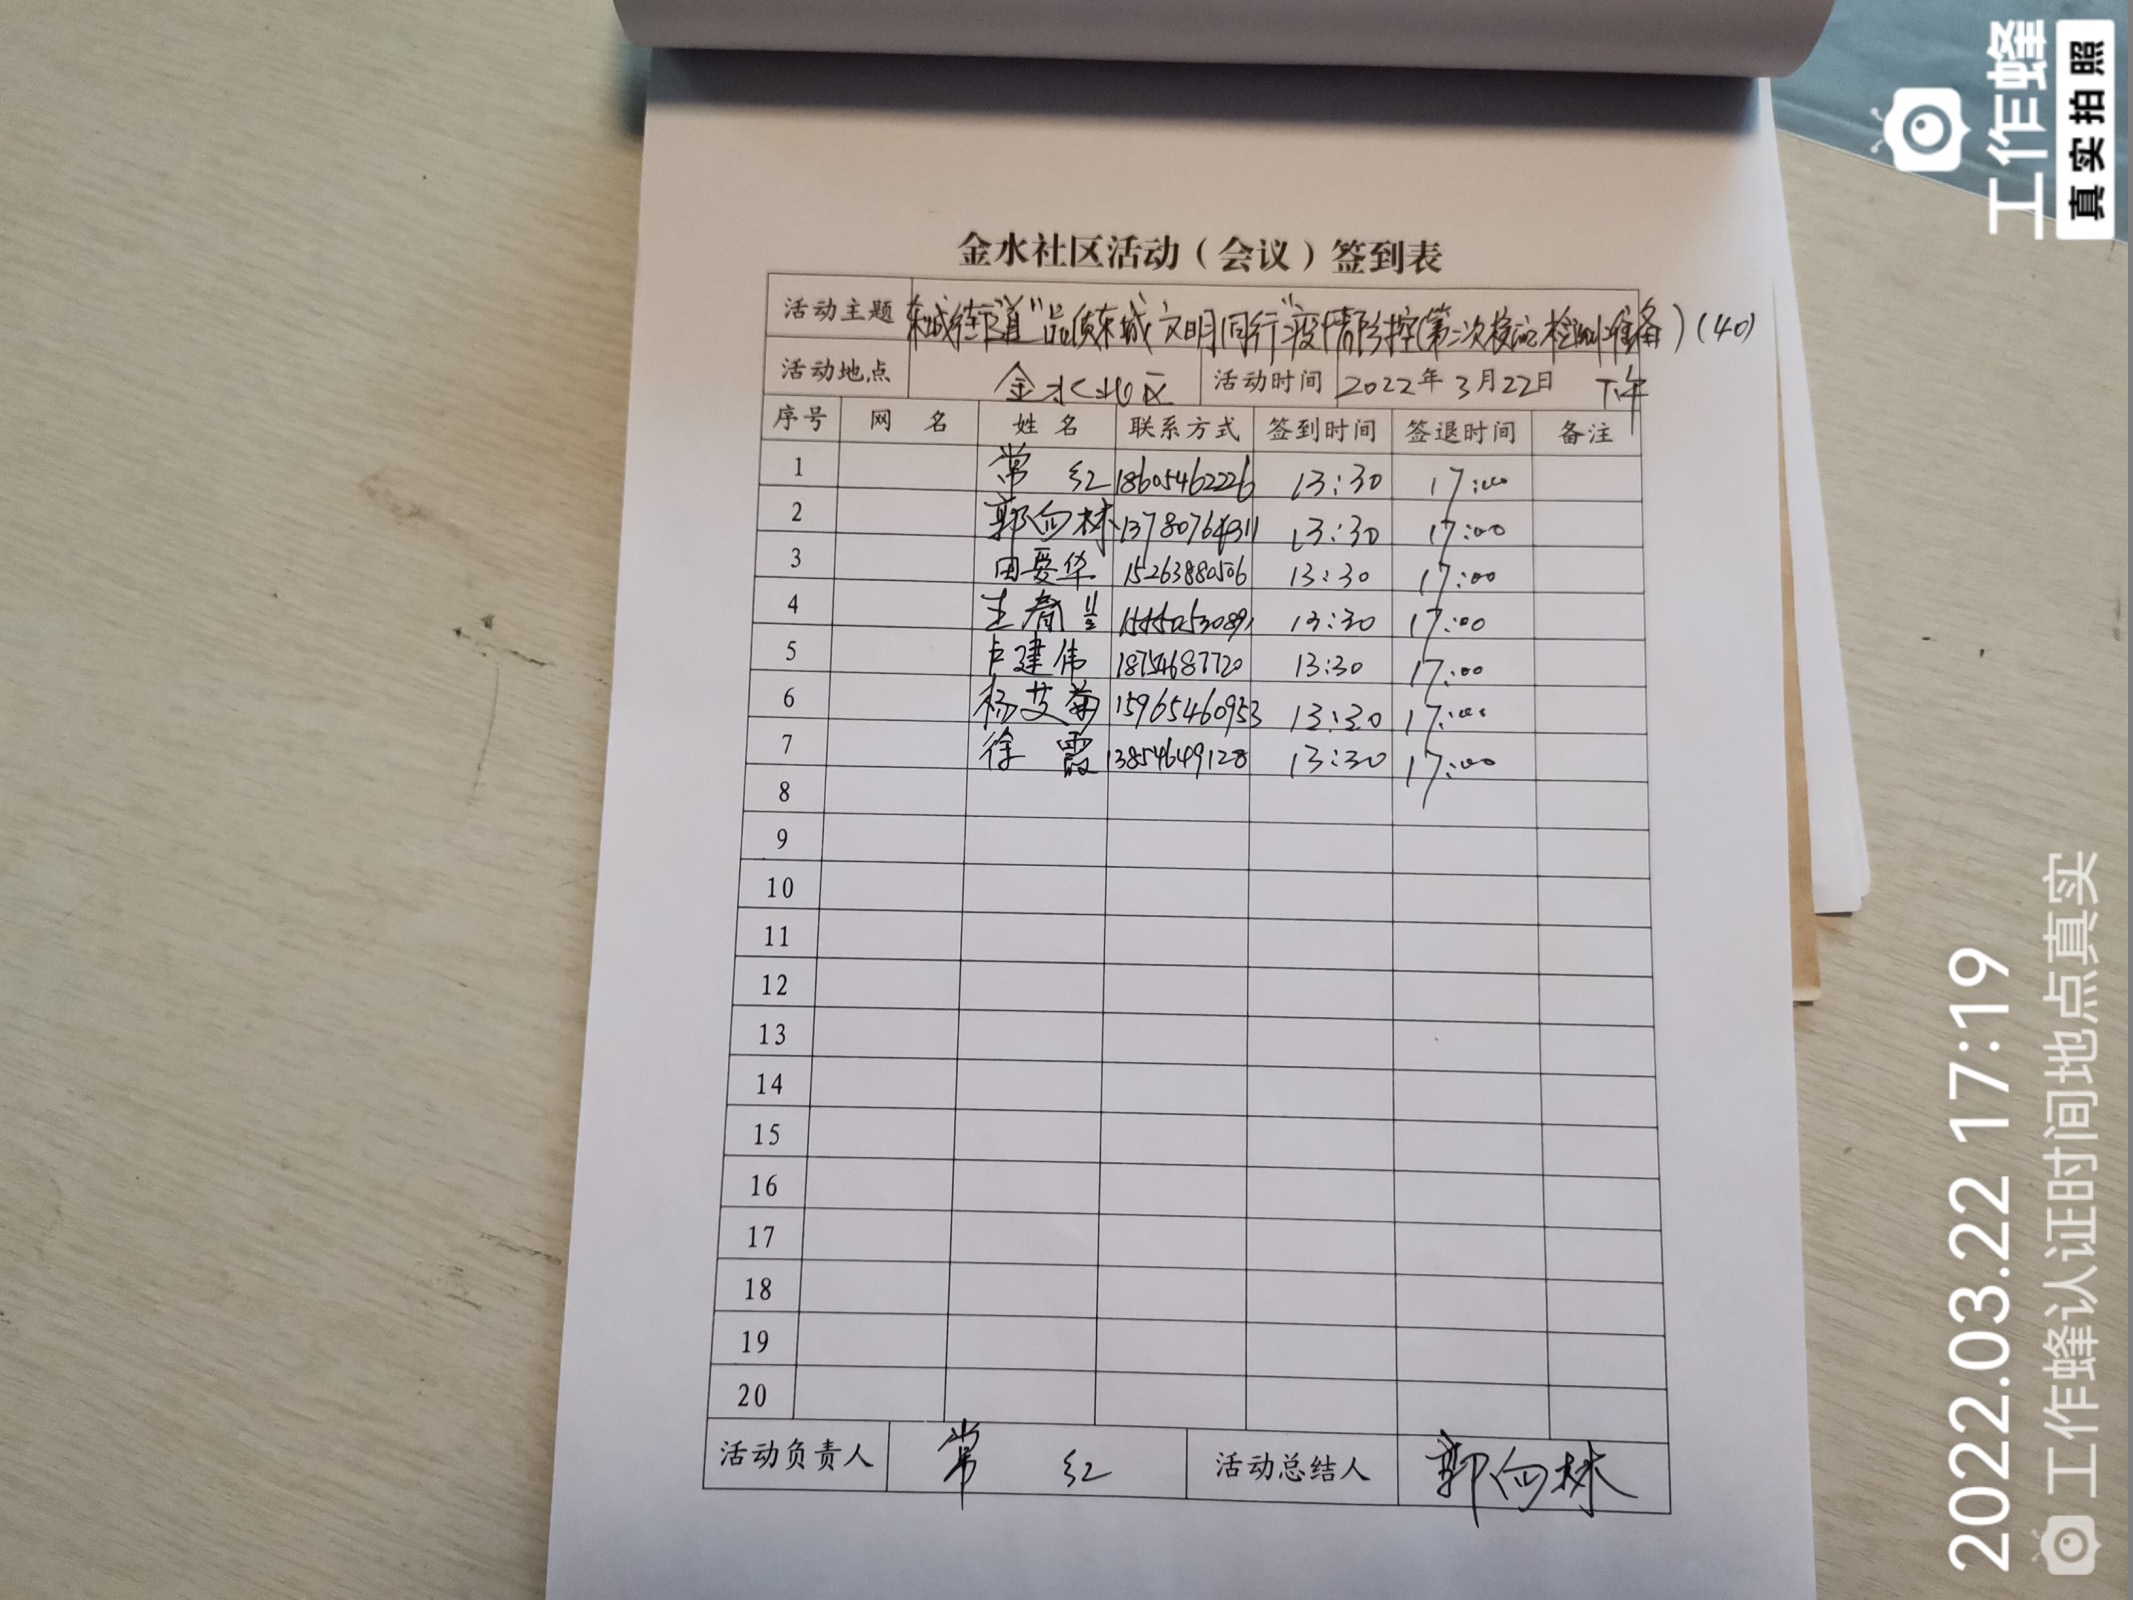 金水社区活动（会议）签到表
活动主题 东城街道"品质东城 文明同行"疫情防控(第二次核酸检测准备)(40)
活动地点 金水社区 活动时间 2022年3月22日 下午
序号 网名 姓名 联系方式 签到时间 签退时间 备注
1 常红 18605462226 13:30 17:00
2 郭向林 13780764311 13:30 17:00
3 田爱华 15263880506 13:30 17:00
4 王春 13:30 17:00
5 卢建伟 18754687720 13:30 17:00
6 杨艾菊 15965460953 13:30 17:00
7 徐霞 13854649128 13:30 17:00
8
9
10
11
12
13
14
15
16
17
18
19
20
活动负责人 常红 活动总结人 郭向林
工作蜂
真实拍照
2022.03.22 17:19
工作蜂认证时间地点真实